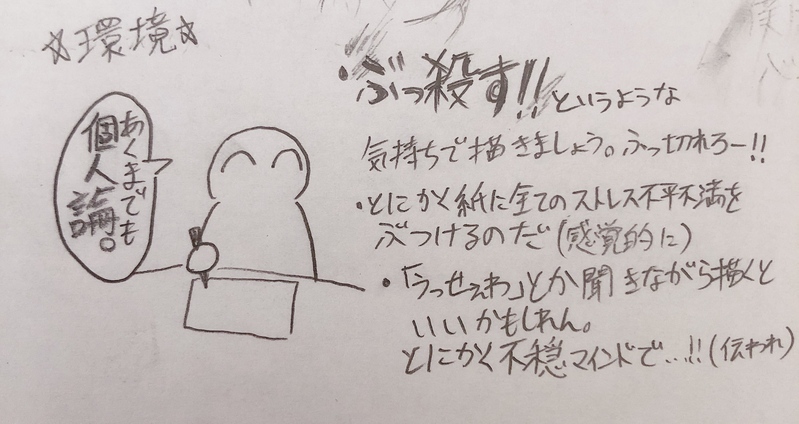 ☆環境☆
あくまでも
個人論。
・ぶっ殺す!!というような
気持ちで描きましょう。ふっ切れろー!!
・とにかく紙に全てのストレス不平不満を
ぶつけるのだ(感覚的に)
・「うっせぇわ」とか聞きながら描くと
いいかもしれん。
とにかく不穏マインドで…!!(伝われ)